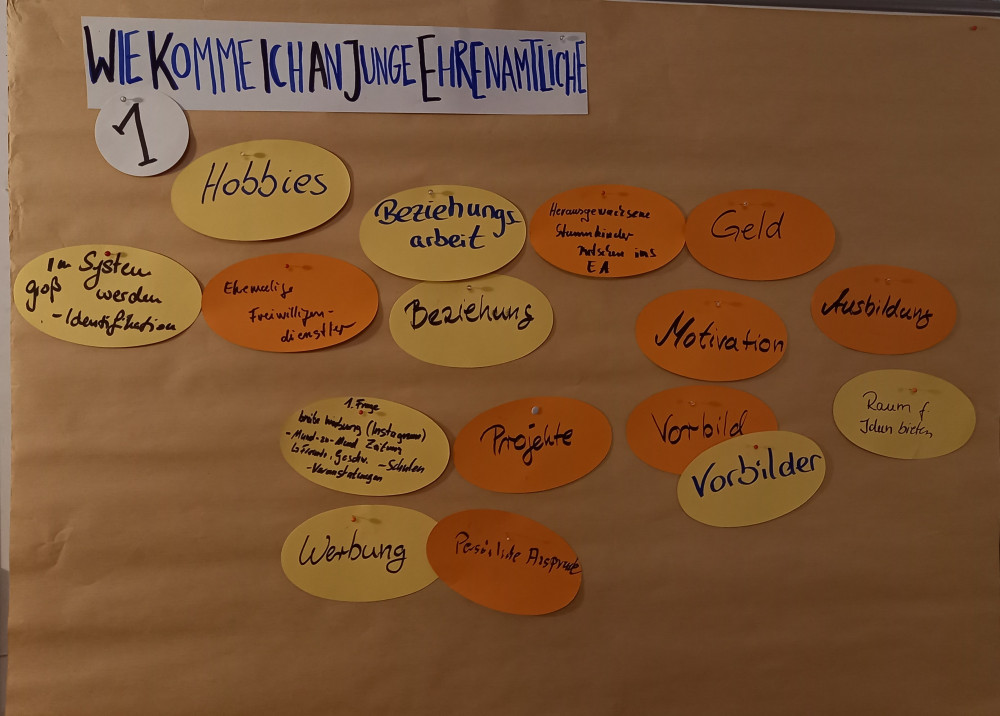 WIE KOMME ICH AN JUNGE EHRENAMTLICHE
1
Hobbies
Beziehungs
arbeit
Herausgewachsene
Stammkinder
ins
EA
Geld
Im System
groß werden
- Identifikation
Ehemalige
Freiwilligen-
dienstler
Beziehung
Motivation
Ausbildung
1. Frage
(Instagram)
- Mund-zu-Mund Zeitung
- Schulen
- Veranstaltungen
Projekte
Vorbild
Vorbilder
Raum f.
Ideen bieten
Werbung
Persönliche Ansprache